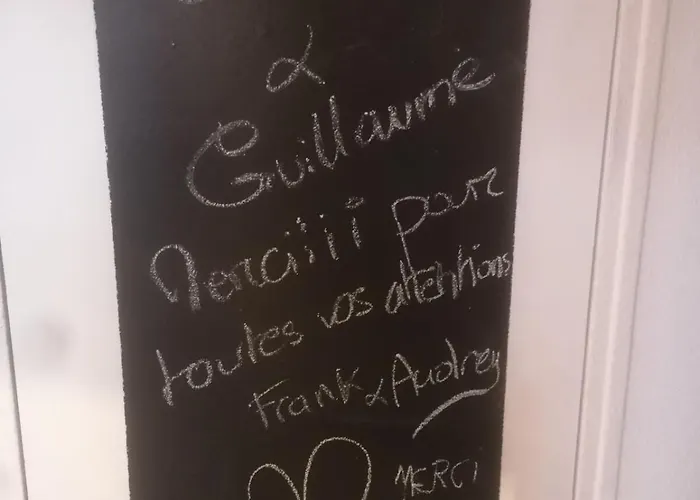 &
Guillaume
Merciiii pour
toutes vos attentions
Frank & Audrey
MERCI